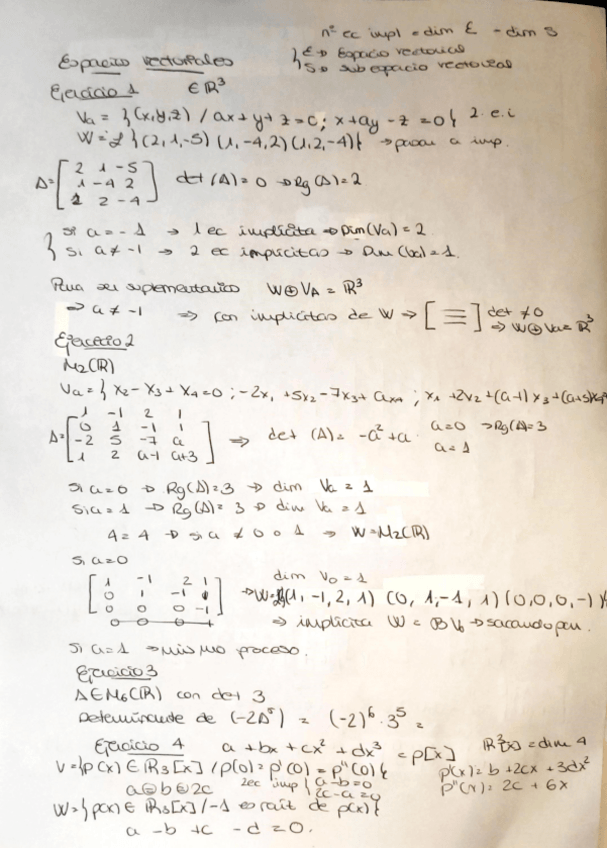 nº ec impl = dim E - dim S
Espacios vectoriales { E → Espacio vectorial
S → subespacio vectorial
Ejercicio 1 ∈ ℝ³
Va = {(x,y,z) / ax+y+z=c; x+ay-z=0} 2 e.i
W = L{(2,1,-5)(1,-4,2)(1,2,-4)} → pasar a imp.
A = [2 1 -5
1 -4 2
1 2 -4] det(A)=0 → Rg(A)=2
{ Si a=-1 → 1 ec implícita → Dim(Va)=2
Si a≠-1 → 2 ec implícitas → Dim(Va)=1
Para ser suplementario W⊕VA = ℝ³
⇒ a≠-1 ⇒ con implícitas de W → [≡] det ≠0
⇒ W⊕Va=ℝ³
Ejercicio 2
M2(ℝ)
Va = { x2-x3+x4=0; -2x1+5x2-7x3+ax4; x1+2x2+(a-1)x3+(a+3)x4
A = [1 -1 2 1
0 1 -1 1
-2 5 -7 a
1 2 a-1 a+3] ⇒ det(A) = -a²+a a=0 → Rg(A)=3
a=1
Si a=0 → Rg(A)=3 → dim Va=1
Si a=1 → Rg(A)=3 → dim Va=1
4=4 → si a≠0 o 1 → W=M2(ℝ)
Si a=0
[1 -1 2 1
0 1 -1 1
0 0 0 -1
0 0 0 0] dim V0=1
→ W=L{(1,-1,2,1) (0,1,-1,1)(0,0,0,-1)}
⇒ implícita W = B V0 → sacando par.
Si a=1 → Mismo proceso.
Ejercicio 3
A∈M6(ℝ) con det 3
Determinante de (-2A⁵) = (-2)⁶ · 3⁵ =
Ejercicio 4 a+bx+cx²+dx³ = p[x] ℝ³[x] = dim 4
V={p(x)∈ℝ3[x] / p(0)=p'(0)=p''(0)} p'(x)=b+2cx+3dx²
a=b=2c 2ec imp { a-b=0
2c-a=0 p''(x)=2c+6x
W={p(x)∈ℝ3[x] / -1 es raíz de p(x)}
a-b+c-d=0.